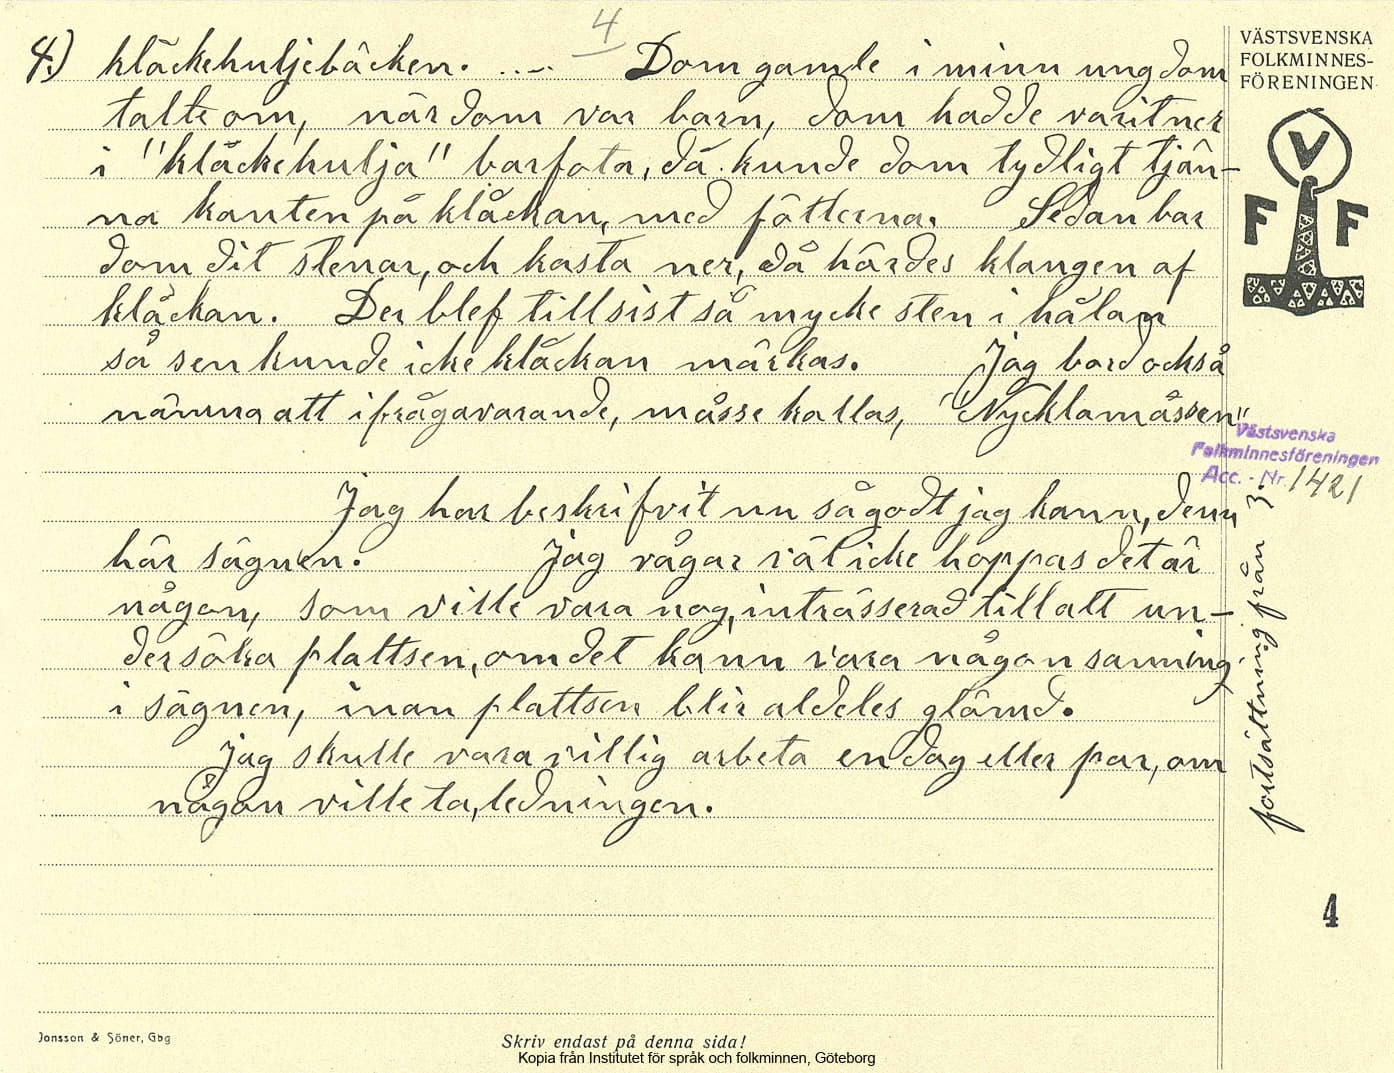 4
4.) kläckehuljebäcken. .... Dom gamle i minn ungdom
talte om, när dom var barn, dom hadde varit ner
i "kläckehulja" barfota, då kunde dom tydligt tjän-
na kanten på klåckan, med fötterna. Sedan bar
dom dit stenar, och kasta ner, då hördes klangen af
klåckan. Der blef tillsist så mycke sten i hålan
så sen kunde icke klåckan märkas. Jag bord också
nämna att ifrågavarande, måsse kallas, "Nycklamåssen"
Jag har beskrifvit nu så godt jag kann, denn
här sägnen. Jag vågar väl icke hoppas det är
någon, som ville vara nog, inträsserad till att un-
dersöka plattsen, om det kann vara någon sanning
i sägnen, inan plattsen blir aldeles glömd.
Jag skulle vara villig arbeta en dag eller par, om
någon ville ta, ledningen.
VÄSTSVENSKA
FOLKMINNES-
FÖRENINGEN
V
F F
Västsvenska
Folkminnesföreningen
Acc. - Nr. 1421
fortsättning från 3.
4
Jonsson & Söner, Gbg
Skriv endast på denna sida!
Kopia från Institutet för språk och folkminnen, Göteborg